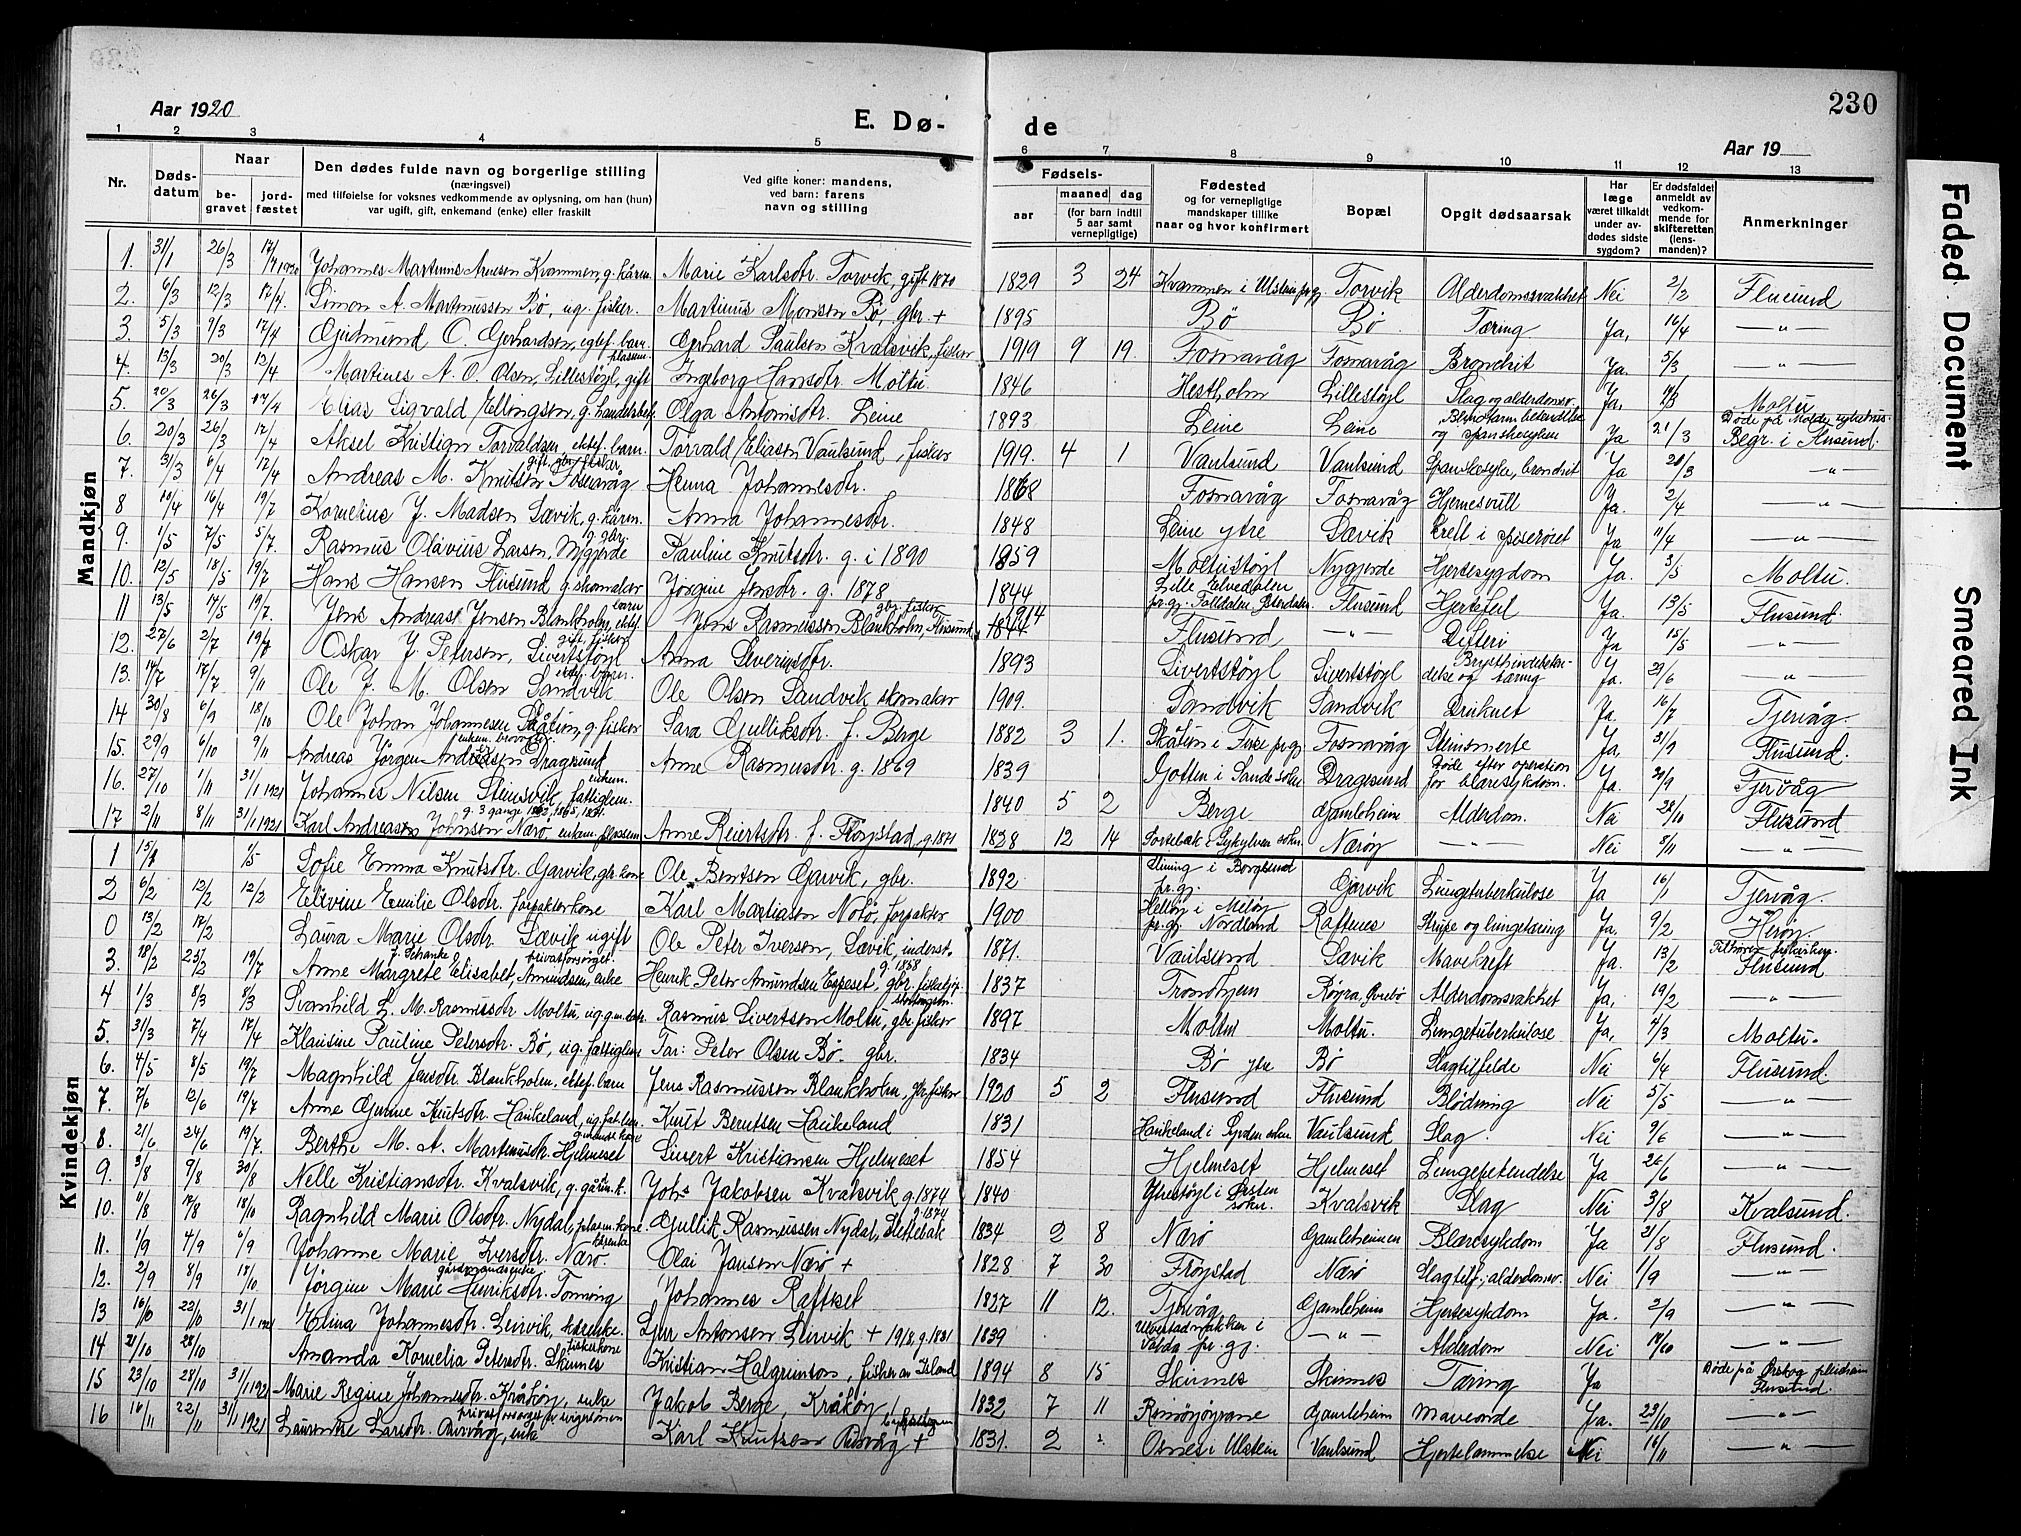 230
Aar 1920
E. Dø-
de
Aar 19
1 2 3 4 5 6 7 8 9 10 11 12 13
Nr.
Døds-
datum
Naar
be-
gravet
jord-
fæstet
Den dødes fulde navn og borgerlige stilling
(næringsvei)
med tilføielse for voksnes vedkommende av oplysning, om han (hun)
var ugift, gift, enkemand (enke) eller fraskilt
Ved gifte koner: mandens,
ved barn: farens
navn og stilling
Fødsels-
aar
maaned
dag
(for barn indtil
5 aar samt
vernepligtige)
Fødested
og for vernepligtige
mandskaper tillike
naar og hvor konfirmert
Bopæl
Opgit dødsaarsak
Har
læge
været tilkaldt
under av-
dødes sidste
sygdom?
Er dødsfaldet
anmeldt av
vedkom-
mende for
skifteretten
(lens-
manden)?
Anmerkninger
Mandkjøn
1. 31/1 26/3 17/4 1920 Johannes Martinus Arnesen Kvammen, g. kåren. Marie Karlsdtr. Torvik, gift 1870 1829 3 24 Kvammen i Ulstein prgj Torvik Alderdomssvakhet Nei 2/2 Flusund
2. 6/3 12/3 17/4. Simon A. Martinussen Bø, ug. fisker. Martinus Monsen Bø, gbr. + 1895 Bø Bø Tæring Ja, 16/4 — „ —
3. 5/3 9/3 17/4 Gudmund O. Gerhardsen, egtef. barn. Gerhard Paulsen Kvalsvik, fisker 1919 9 19. Fosnavåg Fosnavåg Bronchit Ja. 5/3 — „ —
4. 13/3 20/3 12/4 Martines A. O. Olsen, Lillestøyl, gift plassm. Ingeborg Hansdtr. Moltu. 1846 Hestholm Lillestøyl Slag og alderdomsv. Ja, 14/3 Moltu
5. 20/3 26/3 17/4 Elias Sigvald Ellingsen, g. handelsbet. Olga Antonsdtr. Leine 1893 Leine Leine Blindtarmbetændelse og spanskesyken Ja 21/3 Døde på Molde sykehus. Begr. i Flusund.
6. 20/3 26/3 17/4 Aksel Kristian Torvaldsen, ektef. barn. Torvald Eliasen Vaulsund, fisker 1919. 4 1 Vaulsund Vaulsund Spanskesyke, bronchit Ja 20/3 — „ —
7. 31/3 6/4 17/4 Andreas M. Knutsen Fosnavåg gift, gbr. fisker Henna Johannesdtr. 1868 Fosnavåg Fosnavåg Hjernesvull Ja. 2/4 — „ —
8 10/4 16/4 19/7 Kornelius J. Madsen Sævik, g. kåren. Anna Johannesdtr. 1848 Leine ytre Sævik Kreft i spiserøret Ja 11/4 — „ —
9. 1/5 7/5 5/7. Rasmus Olavius Larsen, Myrgjerde g. gbr. Pauline Knutsdtr. g. i 1890 1859 Moltustøyl Nygjerde Hjertesygdom Ja. 3/5 Moltu.
10. 12/5 18/5 19/7 Hans Hansen Flusund g. skomaker Jørgine Jensdtr. g. 1878 1844 Lille Elvedalen pr.gj. Folldalen Østerdalen Flusund Hjertefeil Ja. 13/5 Flusund.
11 13/5 17/5 19/7. Jens Andreas Jensen Blankholm, ektef. barn Jens Rasmussen Blankholm, Flusund gbr. fisker 1914 Flusund — „ — Difteri Ja 15/5 — „ —
12. 27/6 2/7 19/7 Oskar J. Petersen, Sivertstøyl gift, fisker Anna Severinsdtr. 1893 Sivertstøyl Sivertstøyl Brysthindebetændelse og tæring Ja. 29/6 — „ —
13. 14/7 17/7 9/11 Ole J. M. Olsen Sandvik ektef. barn. Ole Olsen Sandvik skomaker 1909. Sandvik Sandvik Druknet Ja. 16/7 Tjervåg.
14 30/8 6/9 18/10 Ole Johan Johannesen Skåtun, g. fisker Sara Gulliksdtr. f. Berge 1882 3 1. Skåtun i Fiske pr.gj. Fosnavåg Steinsmerte Ja, 31/9 Flusund.
15. 29/9 6/10 9/11 Andreas Jørgen Andreasen Dragesund Anne Rasmusdtr. g. 1869 1839 Gotten i Sande sokn. Dragesund Døde efter operation for blæresykdom. Ja. 29/9 Tjervåg
16. 27/10 1/11 31/1 1921 Johannes Nilsen Steinsvik, fattiglem. enkem. 1840 5 2 Berge Gamleheim Alderdom. Nei 28/10 Flusund
17 2/11 8/11 31/1 1921 Karl Andreas Johnsen Nærø, enkem. plassem. g. 3 gange 1863, 1865, 1871. Anne Reiertsdtr. f. Frøystad, g. 1871 1828 12 14 Sortebæk i Sykylven sokn. Nærøy — „ — Nei 8/11 — „ —
Kvindekjøn
1 15/1 1/5 Sofie Emma Knutsdtr. Gjarvik, gbr. kone Ole Bentsen Gjarvik, gbr. 1892 i Borgesund pr.gj. Gjarvik Lungetuberkulose Ja 16/1 Tjervåg.
2 6/2 12/2 12/2 Elevine Emilie Olsdtr. forpakterkone Karl Martiasen Notø, forpakter 1900 i Meløy pr.gj. Nordland Raftenes Strupe og lungetæring Ja, 9/2 Herøy.
0 13/2 17/2 Laura Marie Olsdtr. Sævik ugift Ole Peter Iversen, Sævik, inderst. 1871. Vaulsund Sævik Mavekreft Ja. 13/2 Tilhører frikirken. Flusund
3. 18/2 25/2 19/7 Anne Margrete Elisabet, Amundsen, enke f. Schanke privatforsørget. Henrik Peter Amundsen Espeset, gbr. g. 1858 1837 Trondhjem Røyra, Øvrebø Alderdomsvakhet Ja, 19/2 — „ —
4 1/3 8/3 8/3 Svanhild L. M. Rasmusdtr. Moltu, ug. gm. dtr. Rasmus Sivertsen Moltu, gbr. fisker 1897 Moltu Moltu. Lungetuberkulose Ja, 4/3 Moltu.
5. 31/3 7/4 17/4 Klausine Pauline Petersdtr. Bø, ug. fattiglem Far: Peter Olsen Bø gbr. 1834 Bø ytre Bø Slagtilfelde Nei 6/4 Flusund.
6. 4/5 8/5 19/7 Magnhild Jensdtr. Blankholm, ektef. barn Jens Rasmussen Blankholm, gbr. fisker 1920 5 2 Flusund Flusund Blødning Nei 5/5 — „ —
7. 7/6 12/6 19/7 Anne Gurine Knutsdtr. Haukeland, ug. fat. lem. Knut Berntsen Haukeland 1831 Haukeland i Syvden sokn. Vaulsund Slag. Nei 9/6 — „ —
8. 21/6 24/6 19/7. Berthe M. A. Martinusdtr. Hjelmeset gmands kone Sivert Kristiansen Hjelmeset 1854 Hjelmeset Hjelmeset Lungebetendelse Ja 26/6 — „ —
9. 3/8 9/8 30/8 Nelle Kristiansdtr. Kvalsvik, g. gårdm. k. Johs Jakobsen Kvalsvik g. 1874 1840 Ytrestøyl i Ørsten sokn. Kvalsvik Slag Nei 3/8 Kvalsund.
10. 11/8 17/8 18/10 Ragnhild Marie Olsdtr. Nydal, plassm. kone Gullik Rasmussen Nydal, Slettebak g. 1874 1834 2 8 Nærø Gamleheimen Blæresykdom Ja 21/8 Flusund.
11. 1/9 4/9 6/9 Johanne Marie Iversdtr. Nærø. kårenke Olai Jansen Nærø + 1828 7 30 Frøystad Nærø Slagtilf., alderdomsv. Nei 1/9 — „ —
12. 2/9 8/9 18/10 Jørgine Marie Henriksdtr. gårdmandsenke Johannes Raftset 1827 11 12. Tjervåg Gamleheim Hjertesykdom Ja. 2/9 — „ —
13 16/10 22/10 31/1 1921 Elina Johannesdtr. Leirvik, kårenke. Sjur Antonsen Leirvik + 1918, g. 1831 1839 Ulvestadmyrane i Volda pr. gj. — „ — Alderdom Nei 18/10 — „ —
14 21/10 28/10 Amanda Kornelia Petersdtr. Skinnes fiskerkone Kristian Halgrimson, fisker av Island 1894 8 15 Skinnes Skinnes Tæring Ja Døde på Ørskog pleiehjem Flusund.
15 23/10 28/10 31/1 1921 Marie Regine Johannesdtr. Kråkøy, enke Jakob Berge, Kråkøy 1832 7 11 Gamleheim Maveonde Ja. 23/10 — „ —
16 16/11 22/11 31/1 1921 Laurentse Larsdtr. Ristvåg, enke privat forsørget av svigersønnen Karl Knutsen Ristvåg + 1831. 2 Osnes i Ulstein Vaulsund Hjertelammelse Nei 16/11 — „ —
Faded Document
Smeared Ink